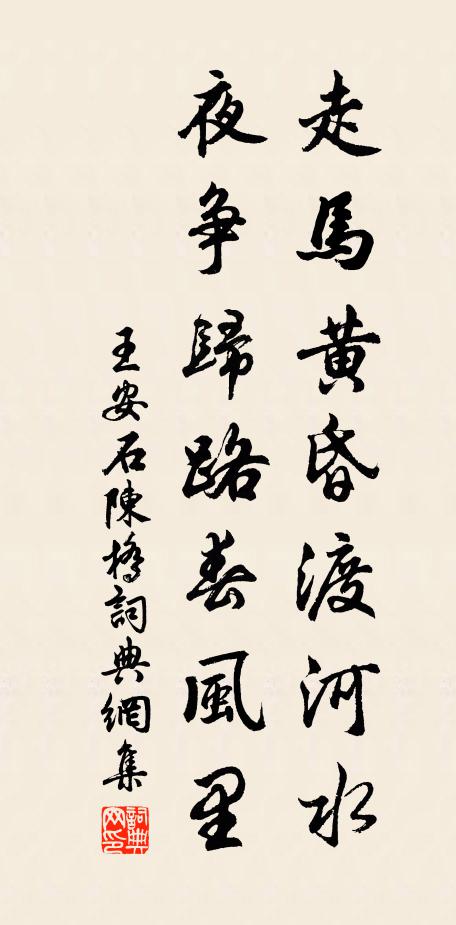 走馬黃昏渡河水
夜争歸路春風里
王安石陳橋詞典網集
詞典
网印